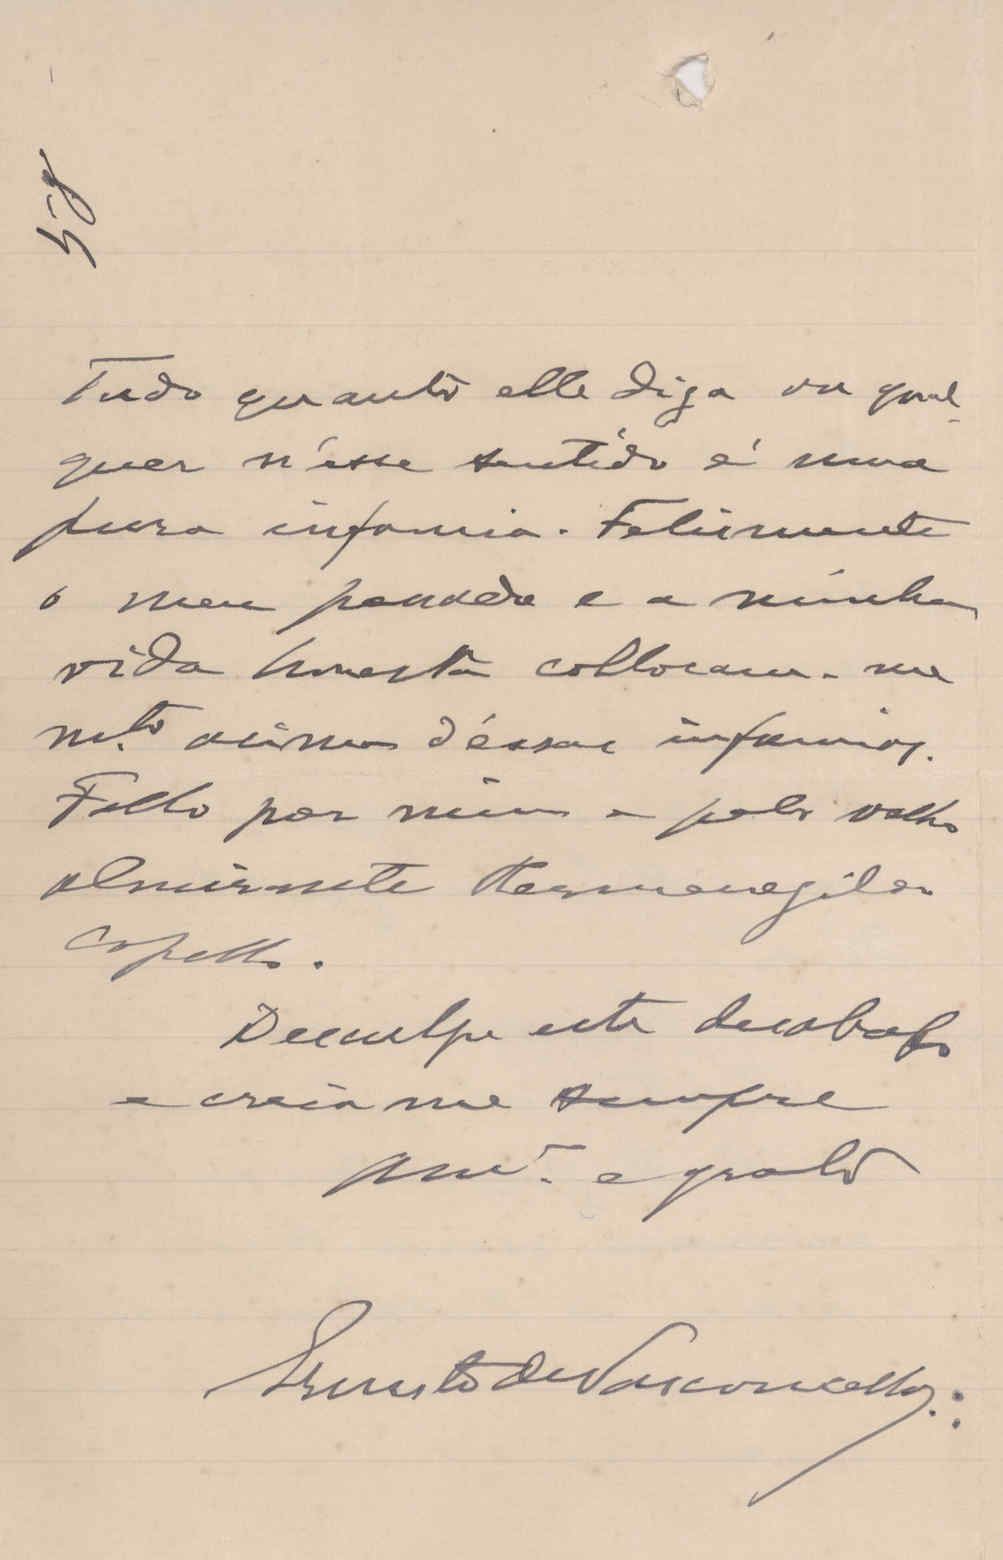 58
Tudo quanto elle diga ou qual-
quer n'esse sentido é uma
pura infamia. Felizmente
o meu passado e a minha
vida honesta collocam-me
m.to acima d'essas infamias.
Fallo por mim e pelo velho
almirante Hermenegildo
Capello.
Desculpe este desabafo
e creia me sempre
am.º e grato
Ernesto de Vasconcellos.